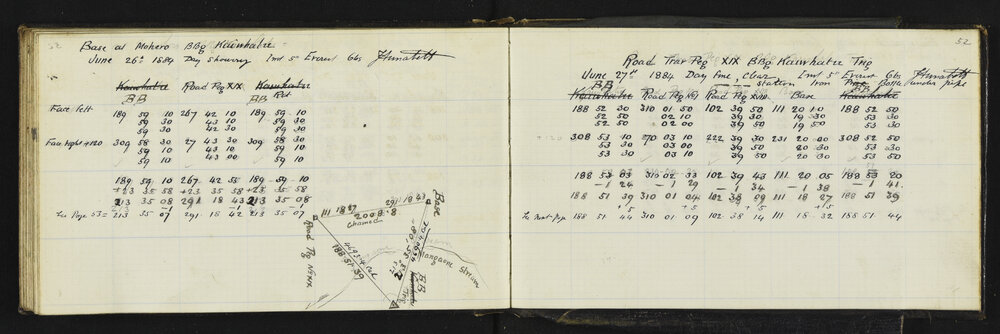 52
Base at Mohero BBg Kaiwhatu
June 26th 1884 Day Showery Inst 5" Everest Obs
Kaiwhatu Road Peg XIX Kaiwhatu
BB BB Ret
Face left 189 59 10 267 42 10 189 59 10
59 30 43 10 59 30
59 30 42 30 59 30
Face right +120 309 58 30 27 43 30 309 58 30
59 10 43 10 59 10
59 10 43 00 59 10
189 59 10 267 42 55 189 59 10
+23 35 58 +23 35 58 +23 35 58
213 35 08 291 18 43 213 35 08
See Page 53 = 213 35 07 291 18 42 213 35 07
111 18 27
291 18 43
2008.8
Chained
Base
Road Peg No XIX
188 51 39
213 35 08
Mangaone Stream
BB
Kaiwhatu
52
Road Trav Peg XIX BBg Kaiwhatu Trig
June 27th 1884 Day Fine, Clear Inst 5" Everest Obs
BB Station Iron Bottle under pipe
Kaiwhatu Road Peg Road Peg Base BB Kaiwhatu
188 52 30 310 01 50 102 39 50 111 20 10 188 52 50
52 50 02 10 39 30 19 30 53 30
52 50 02 00 39 50 19 50 53 30
+120 308 53 10 270 03 10 222 39 30 231 20 00 308 52 50
53 30 03 00 39 50 20 00 53 30
53 30 03 10 39 50 20 50 53 50
188 53 03 310 02 33 102 39 43 111 20 05 188 53 20
-1 24 -1 29 -1 34 -1 38 -1 41
188 51 39 310 01 04 102 38 09 111 18 27 188 51 39
+5 +5 +5 +5
188 51 44 310 01 09 102 38 14 111 18 32 188 51 44